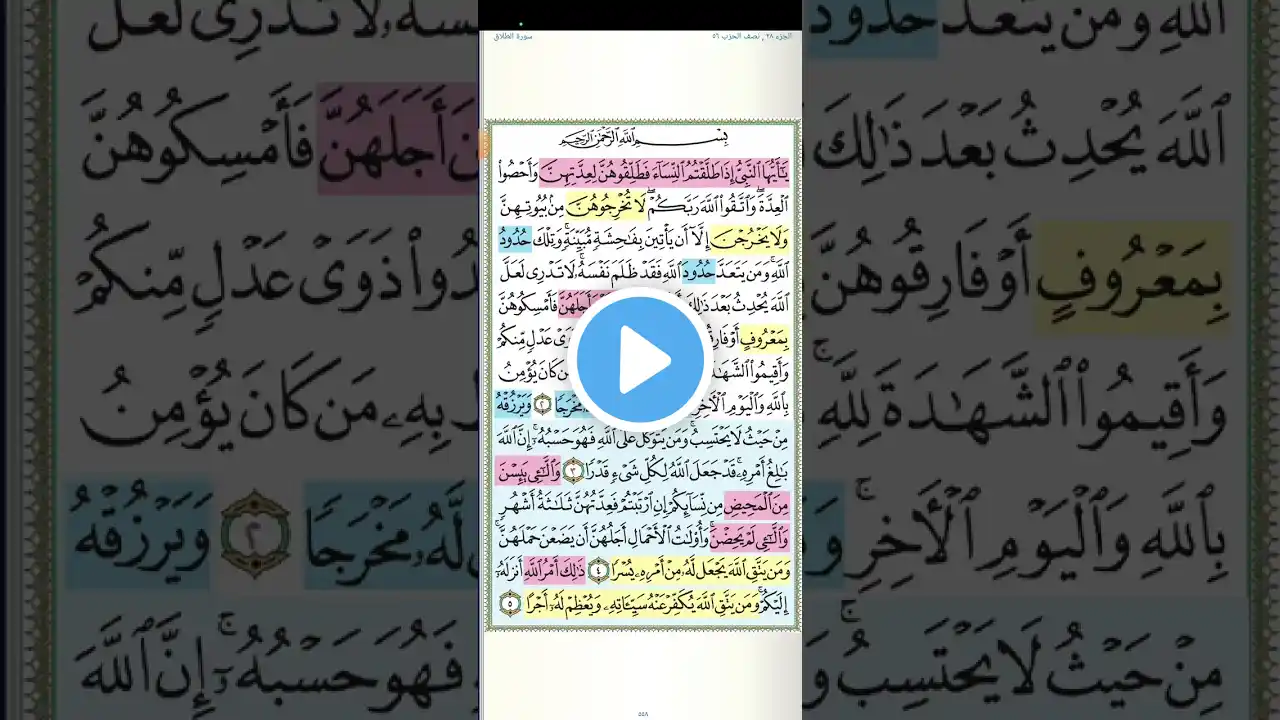 الجزء ٢٨ , نصف الحزب ٥٦
سورة الطلاق
بِسْمِ ٱللَّهِ ٱلرَّحْمَٰنِ ٱلرَّحِيمِ
يَٰٓأَيُّهَا ٱلنَّبِىُّ إِذَا طَلَّقْتُمُ ٱلنِّسَآءَ فَطَلِّقُوهُنَّ لِعِدَّتِهِنَّ وَأَحْصُوا۟
ٱلْعِدَّةَ ۖ وَٱتَّقُوا۟ ٱللَّهَ رَبَّكُمْ ۖ لَا تُخْرِجُوهُنَّ مِنۢ بُيُوتِهِنَّ
وَلَا يَخْرُجْنَ إِلَّآ أَن يَأْتِينَ بِفَٰحِشَةٍ مُّبَيِّنَةٍ ۚ وَتِلْكَ حُدُودُ
ٱللَّهِ ۚ وَمَن يَتَعَدَّ حُدُودَ ٱللَّهِ فَقَدْ ظَلَمَ نَفْسَهُۥ ۚ لَا تَدْرِى لَعَلَّ
ٱللَّهَ يُحْدِثُ بَعْدَ ذَٰلِكَ أَجَلَهُنَّ فَأَمْسِكُوهُنَّ
بِمَعْرُوفٍ أَوْ فَارِقُوهُنَّ ذَوَىْ عَدْلٍ مِّنكُمْ
وَأَقِيمُوا۟ ٱلشَّهَٰدَةَ مَن كَانَ يُؤْمِنُ
بِٱللَّهِ وَٱلْيَوْمِ ٱلْءَاخِرِ ۚ مَخْرَجًا ٢ وَيَرْزُقْهُ
مِنْ حَيْثُ لَا يَحْتَسِبُ ۚ وَمَن يَتَوَكَّلْ عَلَى ٱللَّهِ فَهُوَ حَسْبُهُۥٓ ۚ إِنَّ ٱللَّهَ
بَٰلِغُ أَمْرِهِۦ ۚ قَدْ جَعَلَ ٱللَّهُ لِكُلِّ شَىْءٍ قَدْرًا ٣ وَٱلَّٰٓـِٔى يَئِسْنَ
مِنَ ٱلْمَحِيضِ مِن نِّسَآئِكُمْ إِنِ ٱرْتَبْتُمْ فَعِدَّتُهُنَّ ثَلَٰثَةُ أَشْهُرٍ
وَٱلَّٰٓـِٔى لَمْ يَحِضْنَ ۚ وَأُو۟لَٰتُ ٱلْأَحْمَالِ أَجَلُهُنَّ أَن يَضَعْنَ حَمْلَهُنَّ ۚ
وَمَن يَتَّقِ ٱللَّهَ يَجْعَل لَّهُۥ مِنْ أَمْرِهِۦ يُسْرًا ٤ ذَٰلِكَ أَمْرُ ٱللَّهِ أَنزَلَهُۥٓ
إِلَيْكُمْ ۚ وَمَن يَتَّقِ ٱللَّهَ يُكَفِّرْ عَنْهُ سَيِّـَٔاتِهِۦ وَيُعْظِمْ لَهُۥٓ أَجْرًا ٥
٥٥٨